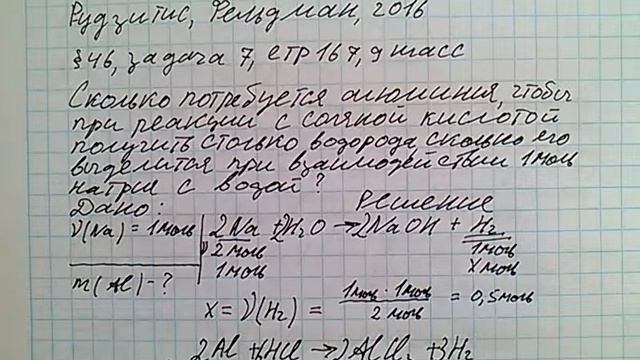 Рудзитис, Фельдман, 2016
§46, задача 7, стр 167, 9 класс
Сколько потребуется алюминия, чтобы
при реакции с соляной кислотой
получить столько водорода, сколько его
выделится при взаимодействии 1 моль
натрия с водой?
Дано: Решение
ν(Na) = 1 моль 2Na + 2H₂O → 2NaOH + H₂
2 моль 1 моль
1 моль x моль
m(Al) - ?
x = ν(H₂) = 1 моль · 1 моль / 2 моль = 0,5 моль
2Al + 6HCl → 2AlCl₃ + 3H₂